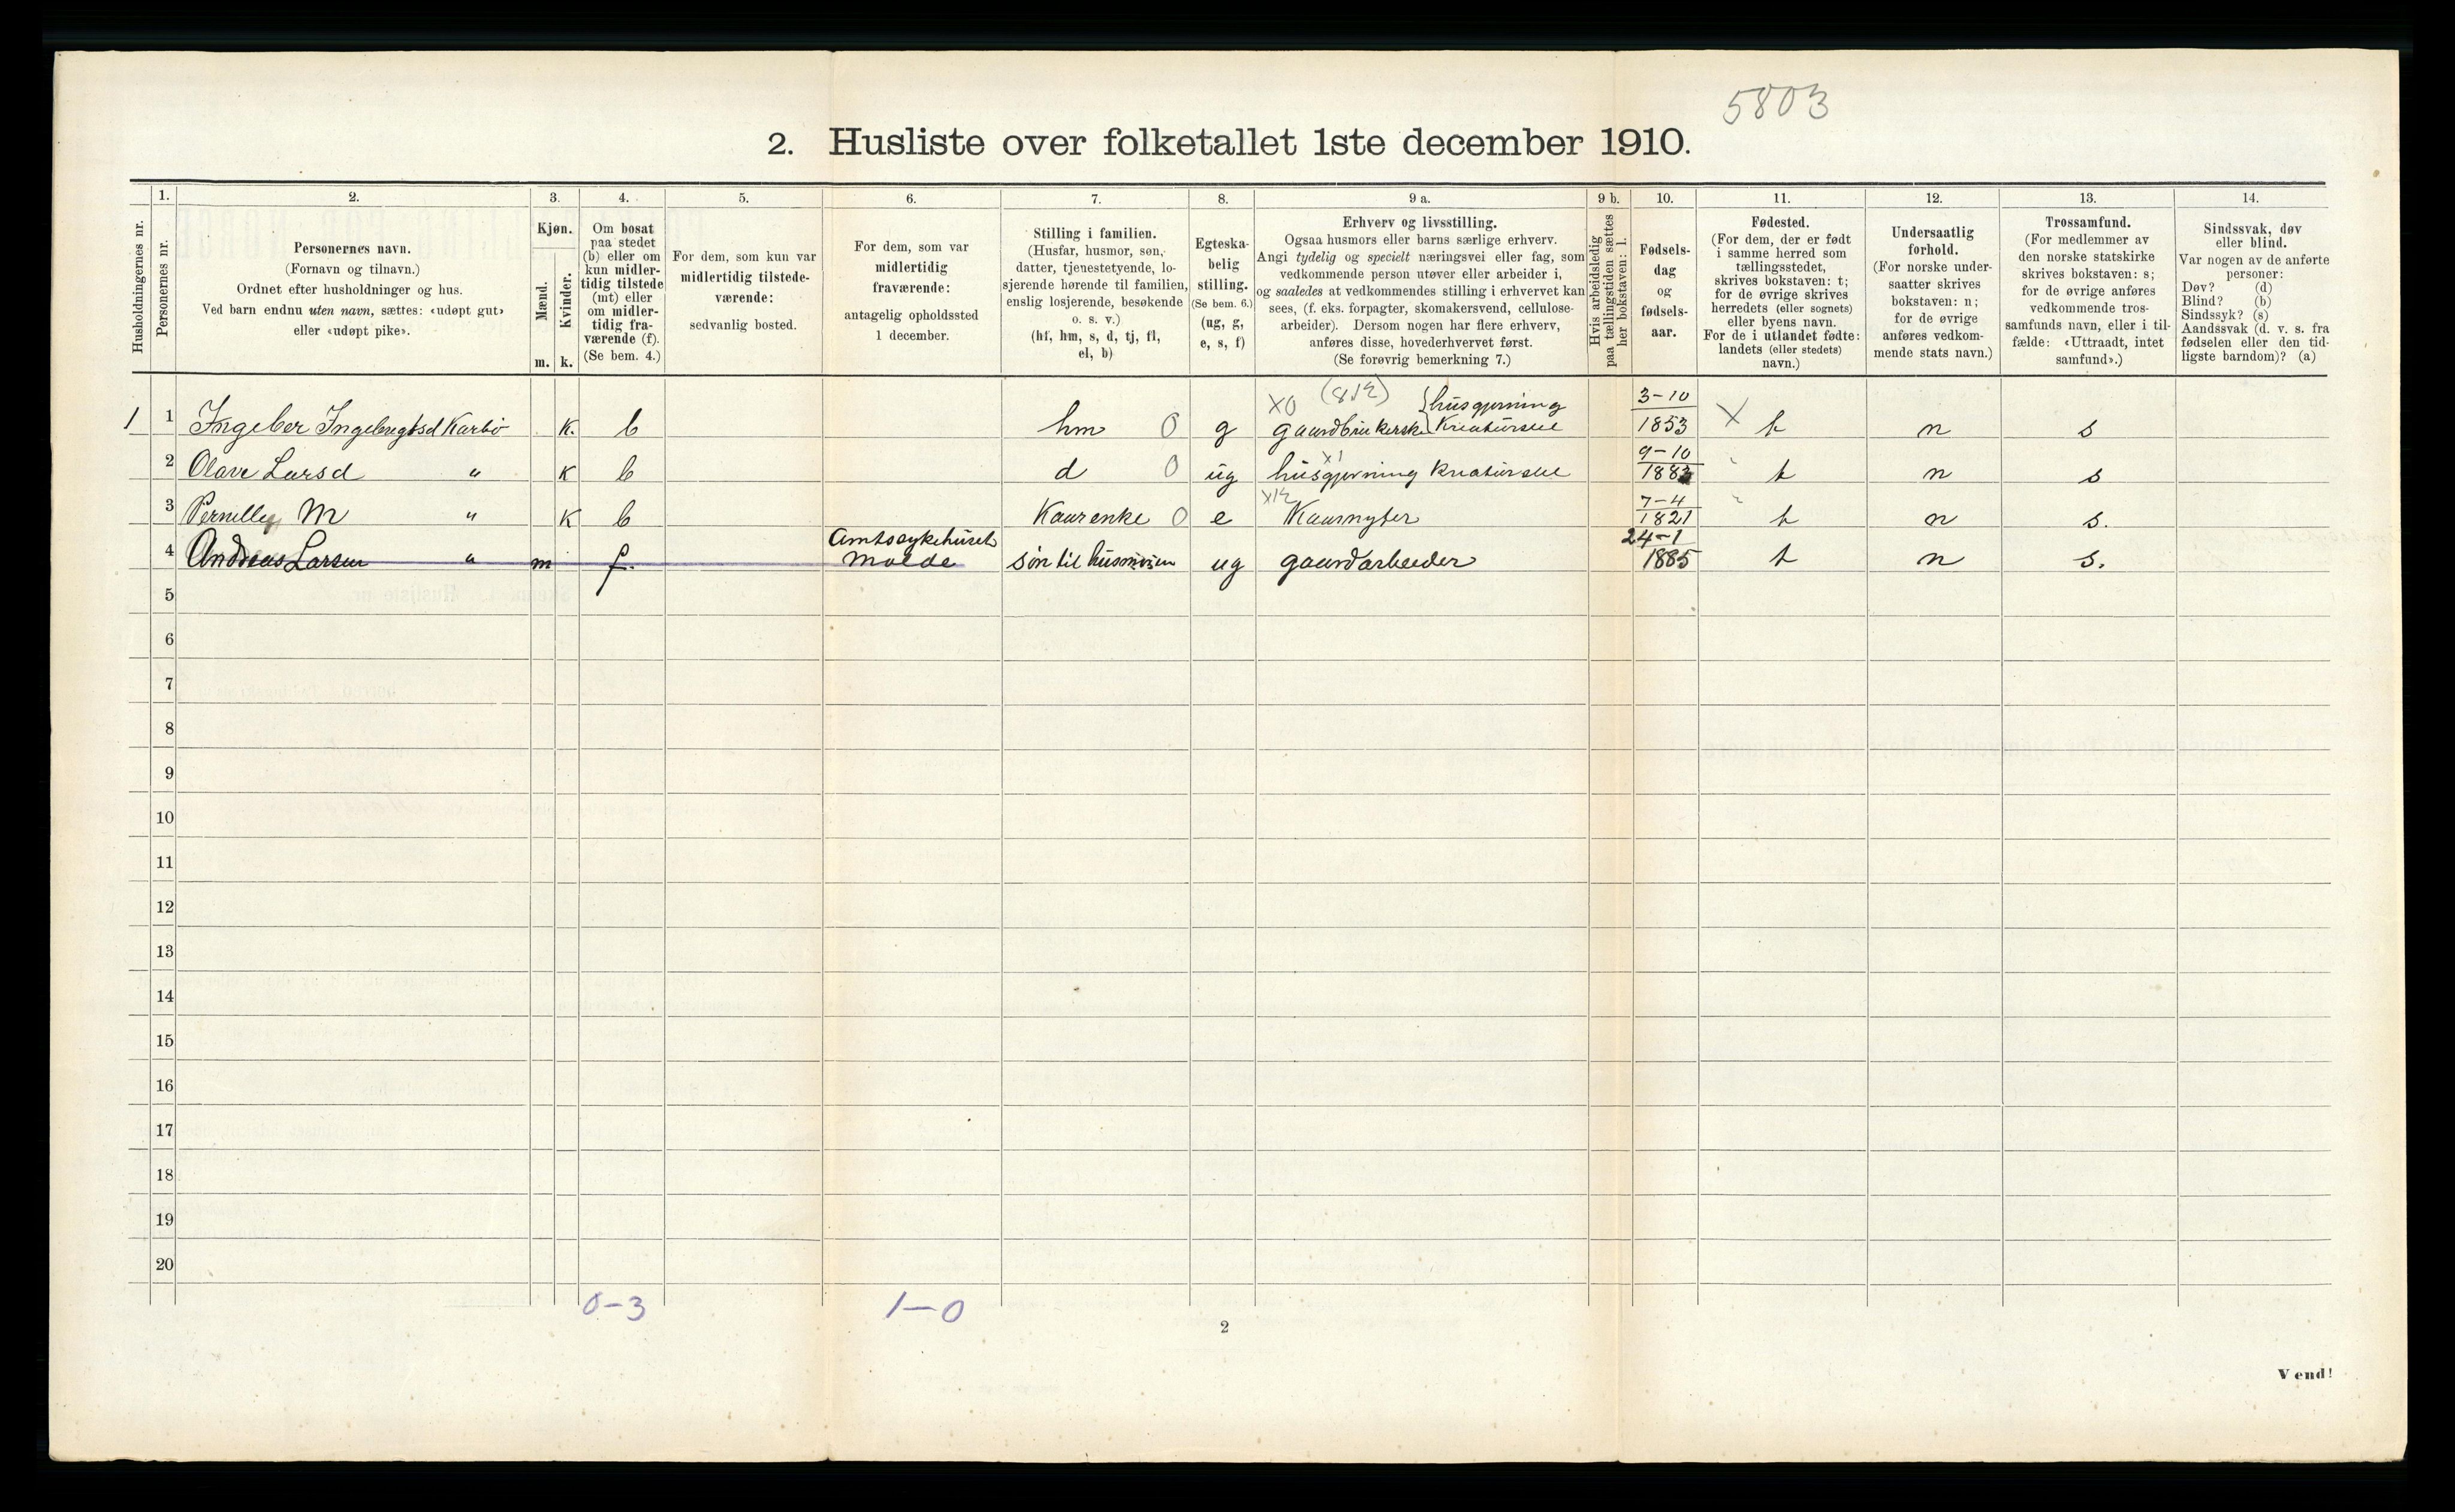 5803
2. Husliste over folketallet 1ste december 1910.
1. 2. 3. 4. 5. 6. 7. 8. 9 a. 9 b. 10. 11. 12. 13. 14.
Husholdningernes nr.
Personernes nr.
Personernes navn.
(Fornavn og tilnavn.)
Ordnet efter husholdninger og hus.
Ved barn endnu uten navn, sættes: «udøpt gut»
eller «udøpt pike».
Kjøn.
Mænd.
m.
Kvinder.
k.
Om bosat
paa stedet
(b) eller om
kun midler-
tidig tilstede
(mt) eller
om midler-
tidig fra-
værende (f).
(Se bem. 4.)
For dem, som kun var
midlertidig tilstede-
værende:
sedvanlig bosted.
For dem, som var
midlertidig
fraværende:
antagelig opholdssted
1 december.
Stilling i familien.
(Husfar, husmor, søn,
datter, tjenestetyende, lo-
sjerende hørende til familien,
enslig losjerende, besøkende
o. s. v.)
(hf, hm, s, d, tj, fl,
el, b)
Egteska-
belig
stilling.
(Se bem. 6.)
(ug, g,
e, s, f)
Erhverv og livsstilling.
Ogsaa husmors eller barns særlige erhverv.
Angi tydelig og specielt næringsvei eller fag, som
vedkommende person utøver eller arbeider i,
og saaledes at vedkommendes stilling i erhvervet kan
sees, (f. eks. forpagter, skomakersvend, cellulose-
arbeider). Dersom nogen har flere erhverv,
anføres disse, hovederhvervet først.
(Se forøvrig bemerkning 7.)
Hvis arbeidsledig
paa tællingstiden sættes
her bokstaven: l.
Fødsels-
dag
og
fødsels-
aar.
Fødested.
(For dem, der er født
i samme herred som
tællingsstedet,
skrives bokstaven: t;
for de øvrige skrives
herredets (eller sognets)
eller byens navn.
For de i utlandet fødte:
landets (eller stedets)
navn.)
Undersaatlig
forhold.
(For norske under-
saatter skrives
bokstaven: n;
for de øvrige
anføres vedkom-
mende stats navn.)
Trossamfund.
(For medlemmer av
den norske statskirke
skrives bokstaven: s;
for de øvrige anføres
vedkommende tros-
samfunds navn, eller i til-
fælde: «Uttraadt, intet
samfund».)
Sindssvak, døv
eller blind.
Var nogen av de anførte
personer:
Døv? (d)
Blind? (b)
Sindssyk? (s)
Aandssvak (d. v. s. fra
fødselen eller den tid-
ligste barndom)? (a)
X0 husgjerning 3-10
1 1 Ingeber Ingebregtsd Karbö k. b hm 0 g gaardbrukerske Kreaturstel 1853 X t n s
X1 9-10
2 Olave Larsd " k b d 0 ug husgjerning Kreaturstel 1883 t n s
7-4
3 Pernille M " k b Kaarenke 0 e Kaarnyter 1821 t n s.
Amtssykehuset 24-1
4 Andreas Larsen " m f. Molde sön til husmoren ug gaardarbeider 1885 t n s.
5
6
7
8
9
10
11
12
13
14
15
16
17
18
19
20
0-3 1-0
2
Vend!